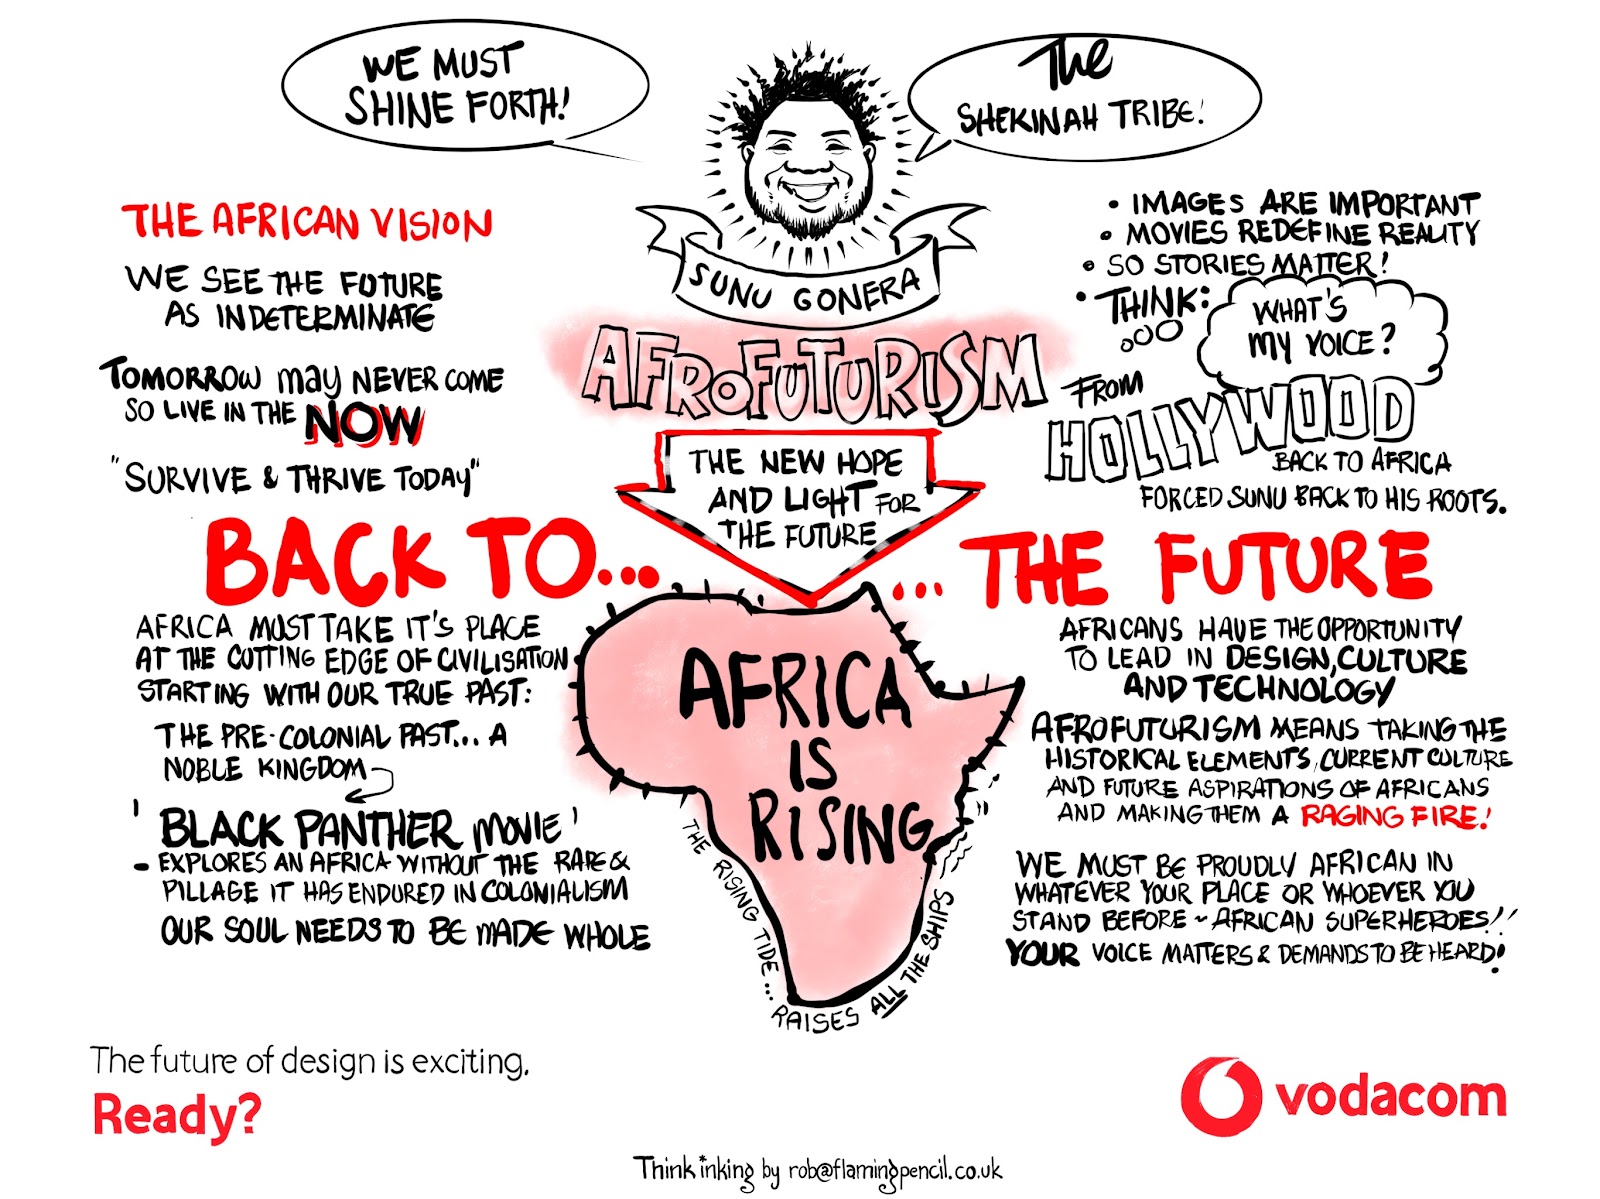 WE MUST
SHINE FORTH!
The
SHEKINAH TRIBE!
SUNU GONERA
AFROFUTURISM
THE NEW HOPE
AND LIGHT FOR
THE FUTURE
THE AFRICAN VISION
WE SEE THE FUTURE
AS INDETERMINATE
TOMORROW may NEVER COME
SO LIVE IN THE NOW
"SURVIVE & THRIVE TODAY"
• IMAGES ARE IMPORTANT
• MOVIES REDEFINE REALITY
• SO STORIES MATTER!
• THINK:
WHAT'S
MY VOICE?
FROM
HOLLYWOOD
BACK TO AFRICA
FORCED SUNU BACK TO HIS ROOTS.
BACK TO...
... THE FUTURE
AFRICA MUST TAKE IT'S PLACE
AT THE CUTTING EDGE OF CIVILISATION
STARTING WITH OUR TRUE PAST:
THE PRE-COLONIAL PAST... A
NOBLE KINGDOM
'BLACK PANTHER MOVIE'
- EXPLORES AN AFRICA WITHOUT THE RAPE &
PILLAGE IT HAS ENDURED IN COLONIALISM
OUR SOUL NEEDS TO BE MADE WHOLE
AFRICA
IS
RISING
THE RISING TIDE... RAISES ALL THE SHIPS
AFRICANS HAVE THE OPPORTUNITY
TO LEAD IN DESIGN, CULTURE
AND TECHNOLOGY
AFROFUTURISM MEANS TAKING THE
HISTORICAL ELEMENTS, CURRENT CULTURE
AND FUTURE ASPIRATIONS OF AFRICANS
AND MAKING THEM A RAGING FIRE!
WE MUST BE PROUDLY AFRICAN IN
WHATEVER YOUR PLACE OR WHOEVER YOU
STAND BEFORE ~ AFRICAN SUPERHEROES!!
YOUR VOICE MATTERS & DEMANDS TO BE HEARD!
The future of design is exciting.
Ready?
vodacom
Think*inking by rob@flamingpencil.co.uk